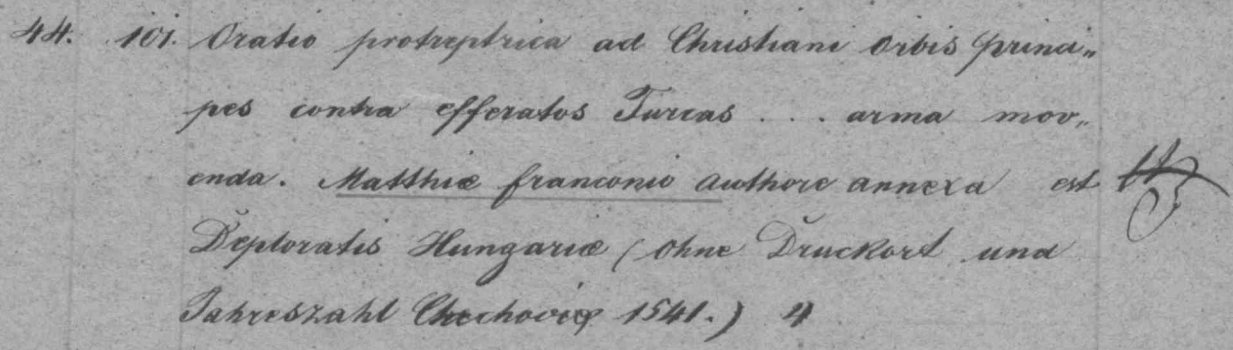 44. 101. Oratio protreptrica ad Christiani Orbis princi„
pes contra efferatos Turcas . . . arma mov„
enda. Matthiæ franconio authore annexa est
Deploratis Hungariæ (Ohne Druckort und
Jahreszahl 1541.) 4